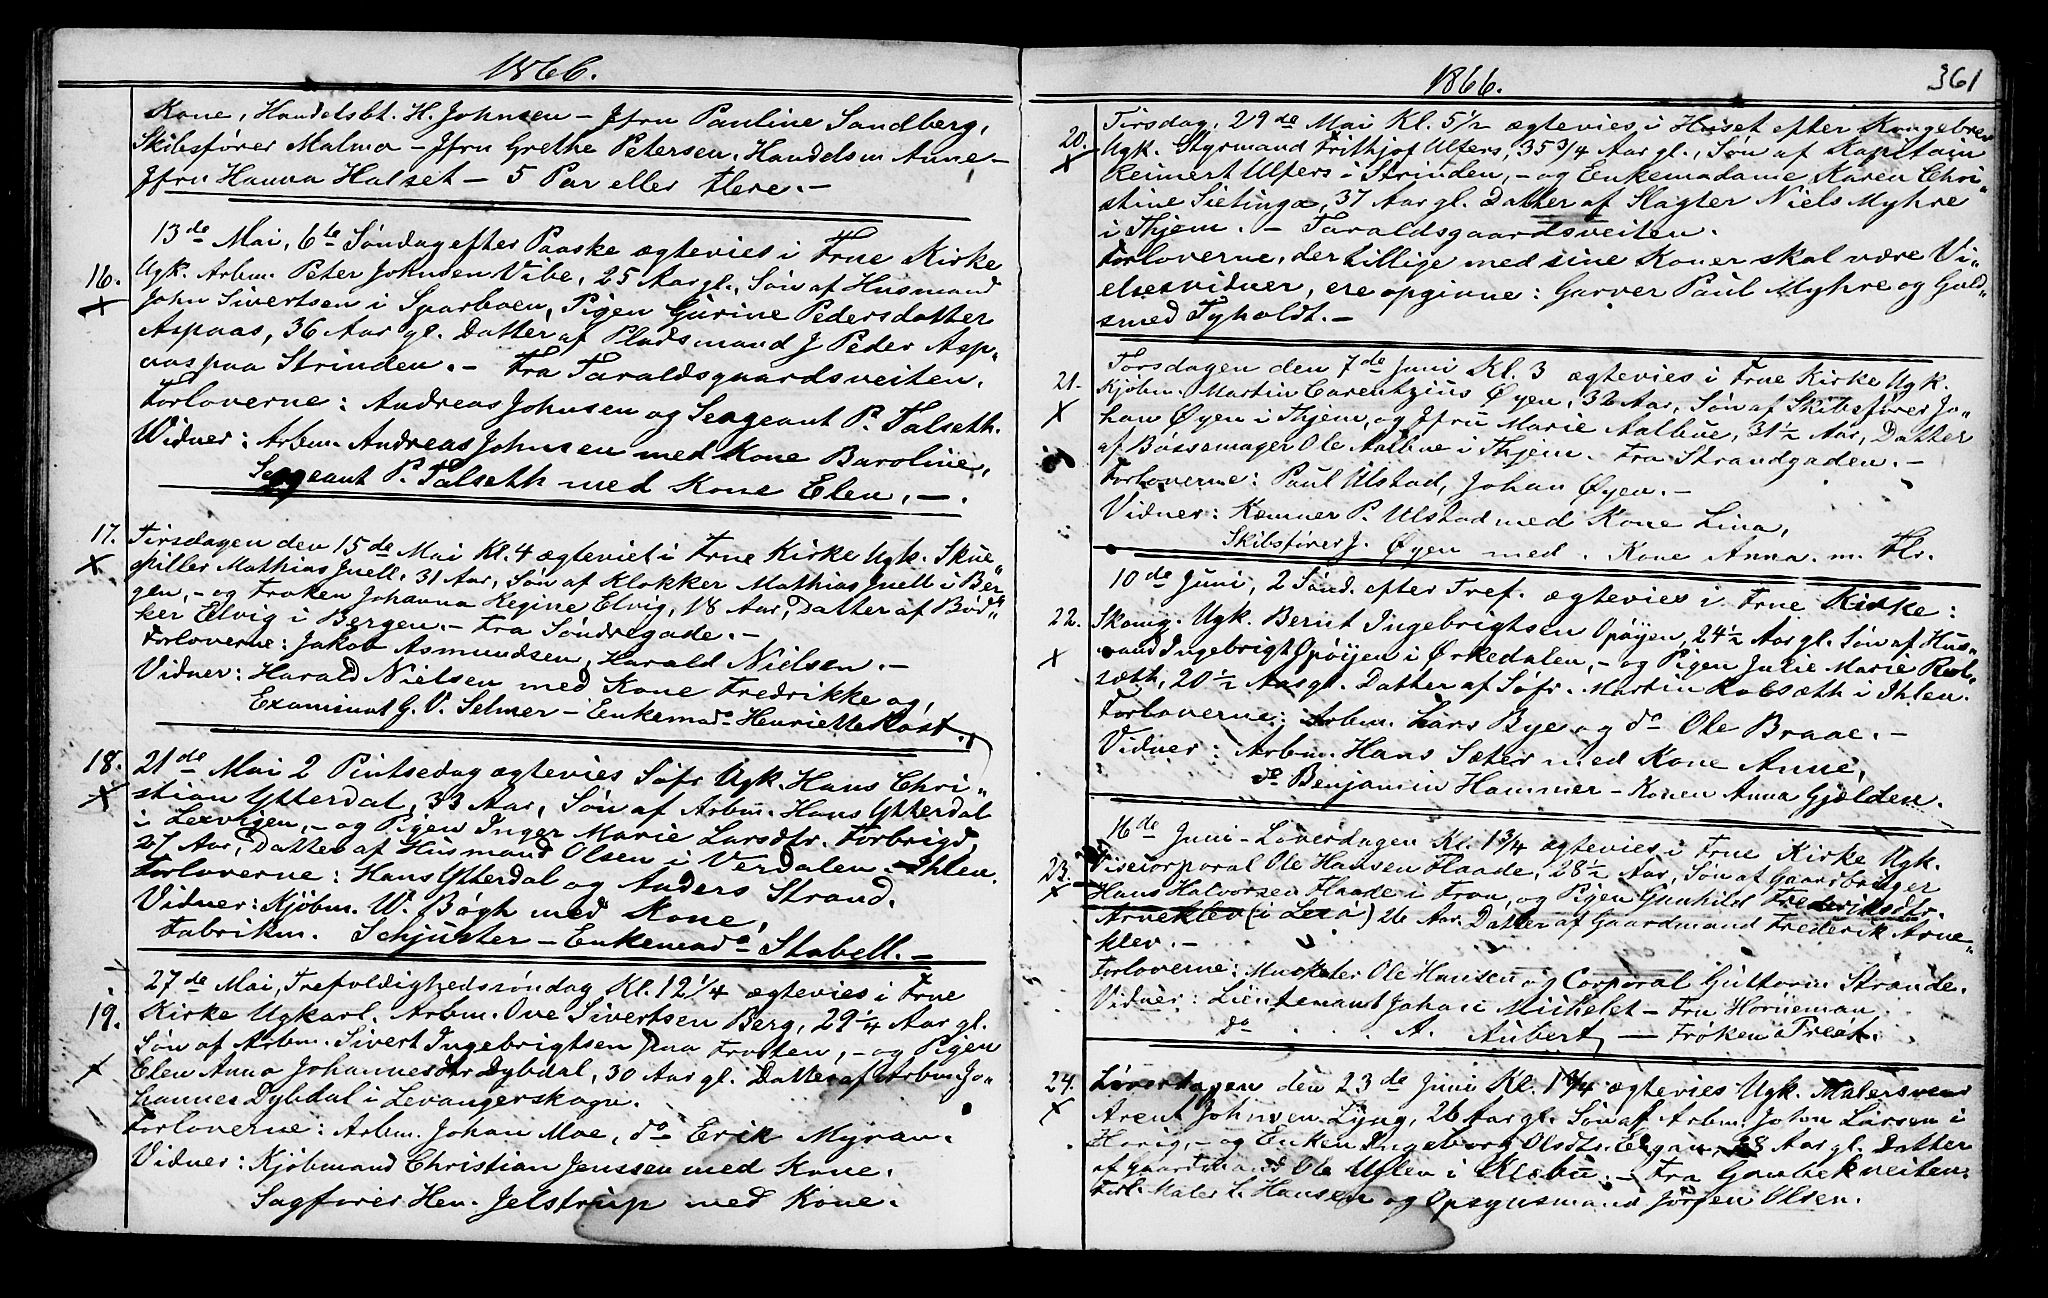 1866.
Kone, Handelsbt. H. Johnsen – Jfru Pauline Sandberg,
Skibsfører Malmo – Jfru Grethe Petersen, Handelsm. Aune –
Jfru Hanna Halset – 5 Par eller flere. –
13de Mai, 6te Søndag efter Paaske ægtevies i Frue Kirke
16. Ugk. Arbm. Peter Johnsen Vibe, 25 Aar gl., Søn af Husmand
x John Sivertsen i Sparboen, Pigen Gurine Pedersdatter
Aspaas, 36 Aar gl. Datter af Pladsmand Peder Asp"
aas paa Strinden. – Fra Taraldsgaardsveiten.
Forloverne: Andreas Johnsen og Sergeant P. Talseth.
Vidner: Arbm. Andreas Johnsen med Kone Baroline,
Sergeant P. Talseth med Kone Elen, –.
17. Tirsdagen den 15de Mai Kl. 4 ægteviet i Frue Kirke Ugk. Skue"
x spiller Mathias Juell, 31 Aar, Søn af Klokker Mathias Juell i Ber"
gen, – og Frøken Johanna Regine Elvig, 18 Aar, Datter af Bød"
ker Elvig i Bergen. – Fra Søndregade. –
Forloverne: Jakob Asmundsen, Harald Nielsen. –
Vidner: Harald Nielsen med Kone Fredrikke og,
Examinat G. V. Selmer – Enkemade Henriette Rost.
18. 21de Mai 2 Pintsedag ægtevies Søfr Ugk. Hans Chri"
x stian Ytterdal, 33 Aar, Søn af Arbm. Hans Ytterdal
i Lexvigen, – og Pigen Inger Marie Larsdtr. Forbrigd,
27 Aar, Datter af Husmand Olsen i Verdalen. Ihlen.
Forloverne: Hans Ytterdal og Anders Strand.
Vidner: Kjøbm. W. Bøgh med Kone,
Fabrikm. Schjuster – Enkemade Stabell. –
27de Mai, Trefoldighedssøndag Kl. 12 1/4 ægtevies i Frue
19. Kirke Ugkarl. Arbm. Ove Sivertsen Berg, 29 1/4 Aar gl.
Søn af Arbm. Sivert Ingebrigtsen paa Frosten, – og Pigen
x Elen Anna Johannesdtr Dybdal, 30 Aar gl. Datter af Arbm. Jo"
hannes Dybdal i Levangerskogn.
Forloverne: Arbm. Johan Moe, do Erik Myran.
Vidner: Kjøbmand Christian Jenssen med Kone.
Sagfører Hen. Jelstrup med Kone.
1866. 361
Tirsdag, 29de Mai Kl. 5 1/2 ægtevies i Huset efter Kongebrev
20. Ugk. Styrmand Frithjof Ulfers, 35 3/4 Aar gl., Søn af Kapitain
x Reinert Ulfers i Strinden, – og Enkemadame Karen Chri"
stine Sietinga, 37 Aar gl. Datter af Slagter Niels Myhre
i Thjem. – Taraldsgaardsveiten.
Forloverne, der tillige med sine Koner skal være Vi"
elsesvidner, ere opgivne: Garver Paul Myhre og Guld"
smed Tyholdt. –
Torsdagen den 7de Juni Kl. 3 ægtevies i Frue Kirke Ugk.
21. Kjøbm. Martin Carentzius Øyen, 32 Aar, Søn af Skibsfører Jo"
x han Øyen i Thjem, og Jfru Marie Aalbue, 31 1/2 Aar, Datter
af Bøssemager Ole Aalbue i Thjem. Fra Strandgaden. –
Forloverne: Paul Ulstad, Johan Øyen. –
Vidner: Kæmner P. Ulstad med Kone Lina,
Skibsfører J. Øyen med. Kone Anna. m. Flr.
10de Juni, 2 Sønd. efter Tref. ægtevies i Frue Kirke:
22. Skomg. Ugk. Berut Ingebrigtsen Opøyen, 24 1/2 Aar gl. Søn af Hus"
x mand Ingebrigt Opøyen i Ørkedalen, – og Pigen Julie Marie Rob"
sæth, 20 1/2 Aar gl. Datter af Søfr. Martin Robsæth i Ihlen.
Forloverne: Arbm. Lars Bye og do Ole Braae. –
Vidner: Arbm. Hans Sæter med Kone Anne,
do Benjamin Hammer – Konen Anna Gjælden.
16de Juni – Løverdagen Kl. 1 3/4 ægtevies i Frue Kirke Ugk.
23. Vicecorporal Ole Hansen Flaade, 28 1/2 Aar, Søn af Gaardbruger
x Hans Halvorsen Flaade i Fron, og Pigen Gunhild Frederiksdtr.
Arneklev (i Lexö) 26 Aar, Datter af Gaardmand Frederik Arne"
klev. –
Forloverne: Musketer Ole Hansen og Corporal Guttorm Strande.
Vidner: Lieutenant Johan Michelet – Fru Horneman
do . . . A. Aubert – Frøken
24. Løverdagen den 23de Juni Kl. 1 3/4 ægtevies Ugk. Malersvend
x Arent Johnsen Lyng, 26 Aar gl. Søn af Arbm. John Larsen i
Havig, – og Enken Ingeborg Olsdtr. Elgan, 28 Aar gl. Datter
af Gaardmand Ole Uften i Klebu. – Fra Gaubekveiten.
Forl. Maler L. Hansen og Opsynsmand Jørgen Olsen.